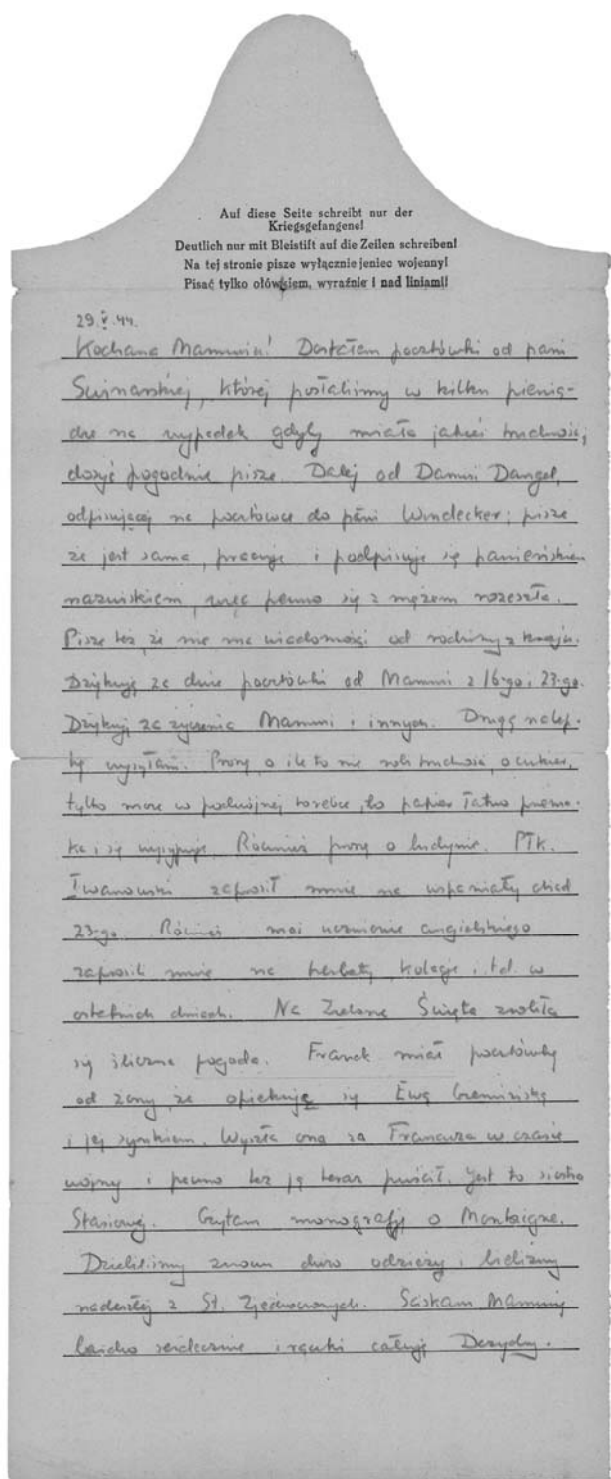 Auf diese Seite schreibt nur der
Kriegsgefangene!
Deutlich nur mit Bleistift auf die Zeilen schreiben!
Na tej stronie pisze wyłącznie jeniec wojenny!
Pisać tylko ołówkiem, wyraźnie i nad liniami!
29.V.44.
Kochana Mamusiu! Dostałem pocztówki od pani
której posłaliśmy w kilku pienią-
dze na wypadek gdyby miała jakieś trudności,
dosyć pogodnie pisze. Dalej od Danusi Dangel,
odpisującej na pocztówkę do pani Windecker; pisze
że jest sama, pracuje i podpisuje się panieńskim
nazwiskiem, więc pewno się z mężem rozeszła.
Pisze też, że nie ma wiadomości od rodziny z kraju.
Dziękuję za dwie pocztówki od Mamusi z 16-go i 23-go.
Dziękuję za życzenia Mamusi i innych. Drugą nalep-
kę wysyłam. Proszę o ile to nie robi trudności, o cukier,
tylko może w podwójnej torebce, bo papier łatwo przemo-
ka i się wysypuje. Również proszę o budynie. Płk.
Iwanowski zaprosił mnie na wspaniały obiad
23-go. Również moi uczniowie angielskiego
zaprosili mnie na herbatę, kolację i.t.d. w
ostatnich dniach. Na Zielone Święta zrobiła
się śliczna pogoda. Franek miał pocztówkę
od żony, że opiekują się Ewą
i jej synkiem. Wyszła ona za Francuza w czasie
wojny i pewno też ją teraz puścił. Jest to siostra
Stasiowej. Czytam monografję o Montaigne.
Dzieliliśmy znowu dużo odzieży i bielizny
nadeszłej z St. Zjednoczonych. Ściskam Mamusię
bardzo serdecznie i rączki całuję Dezydery.